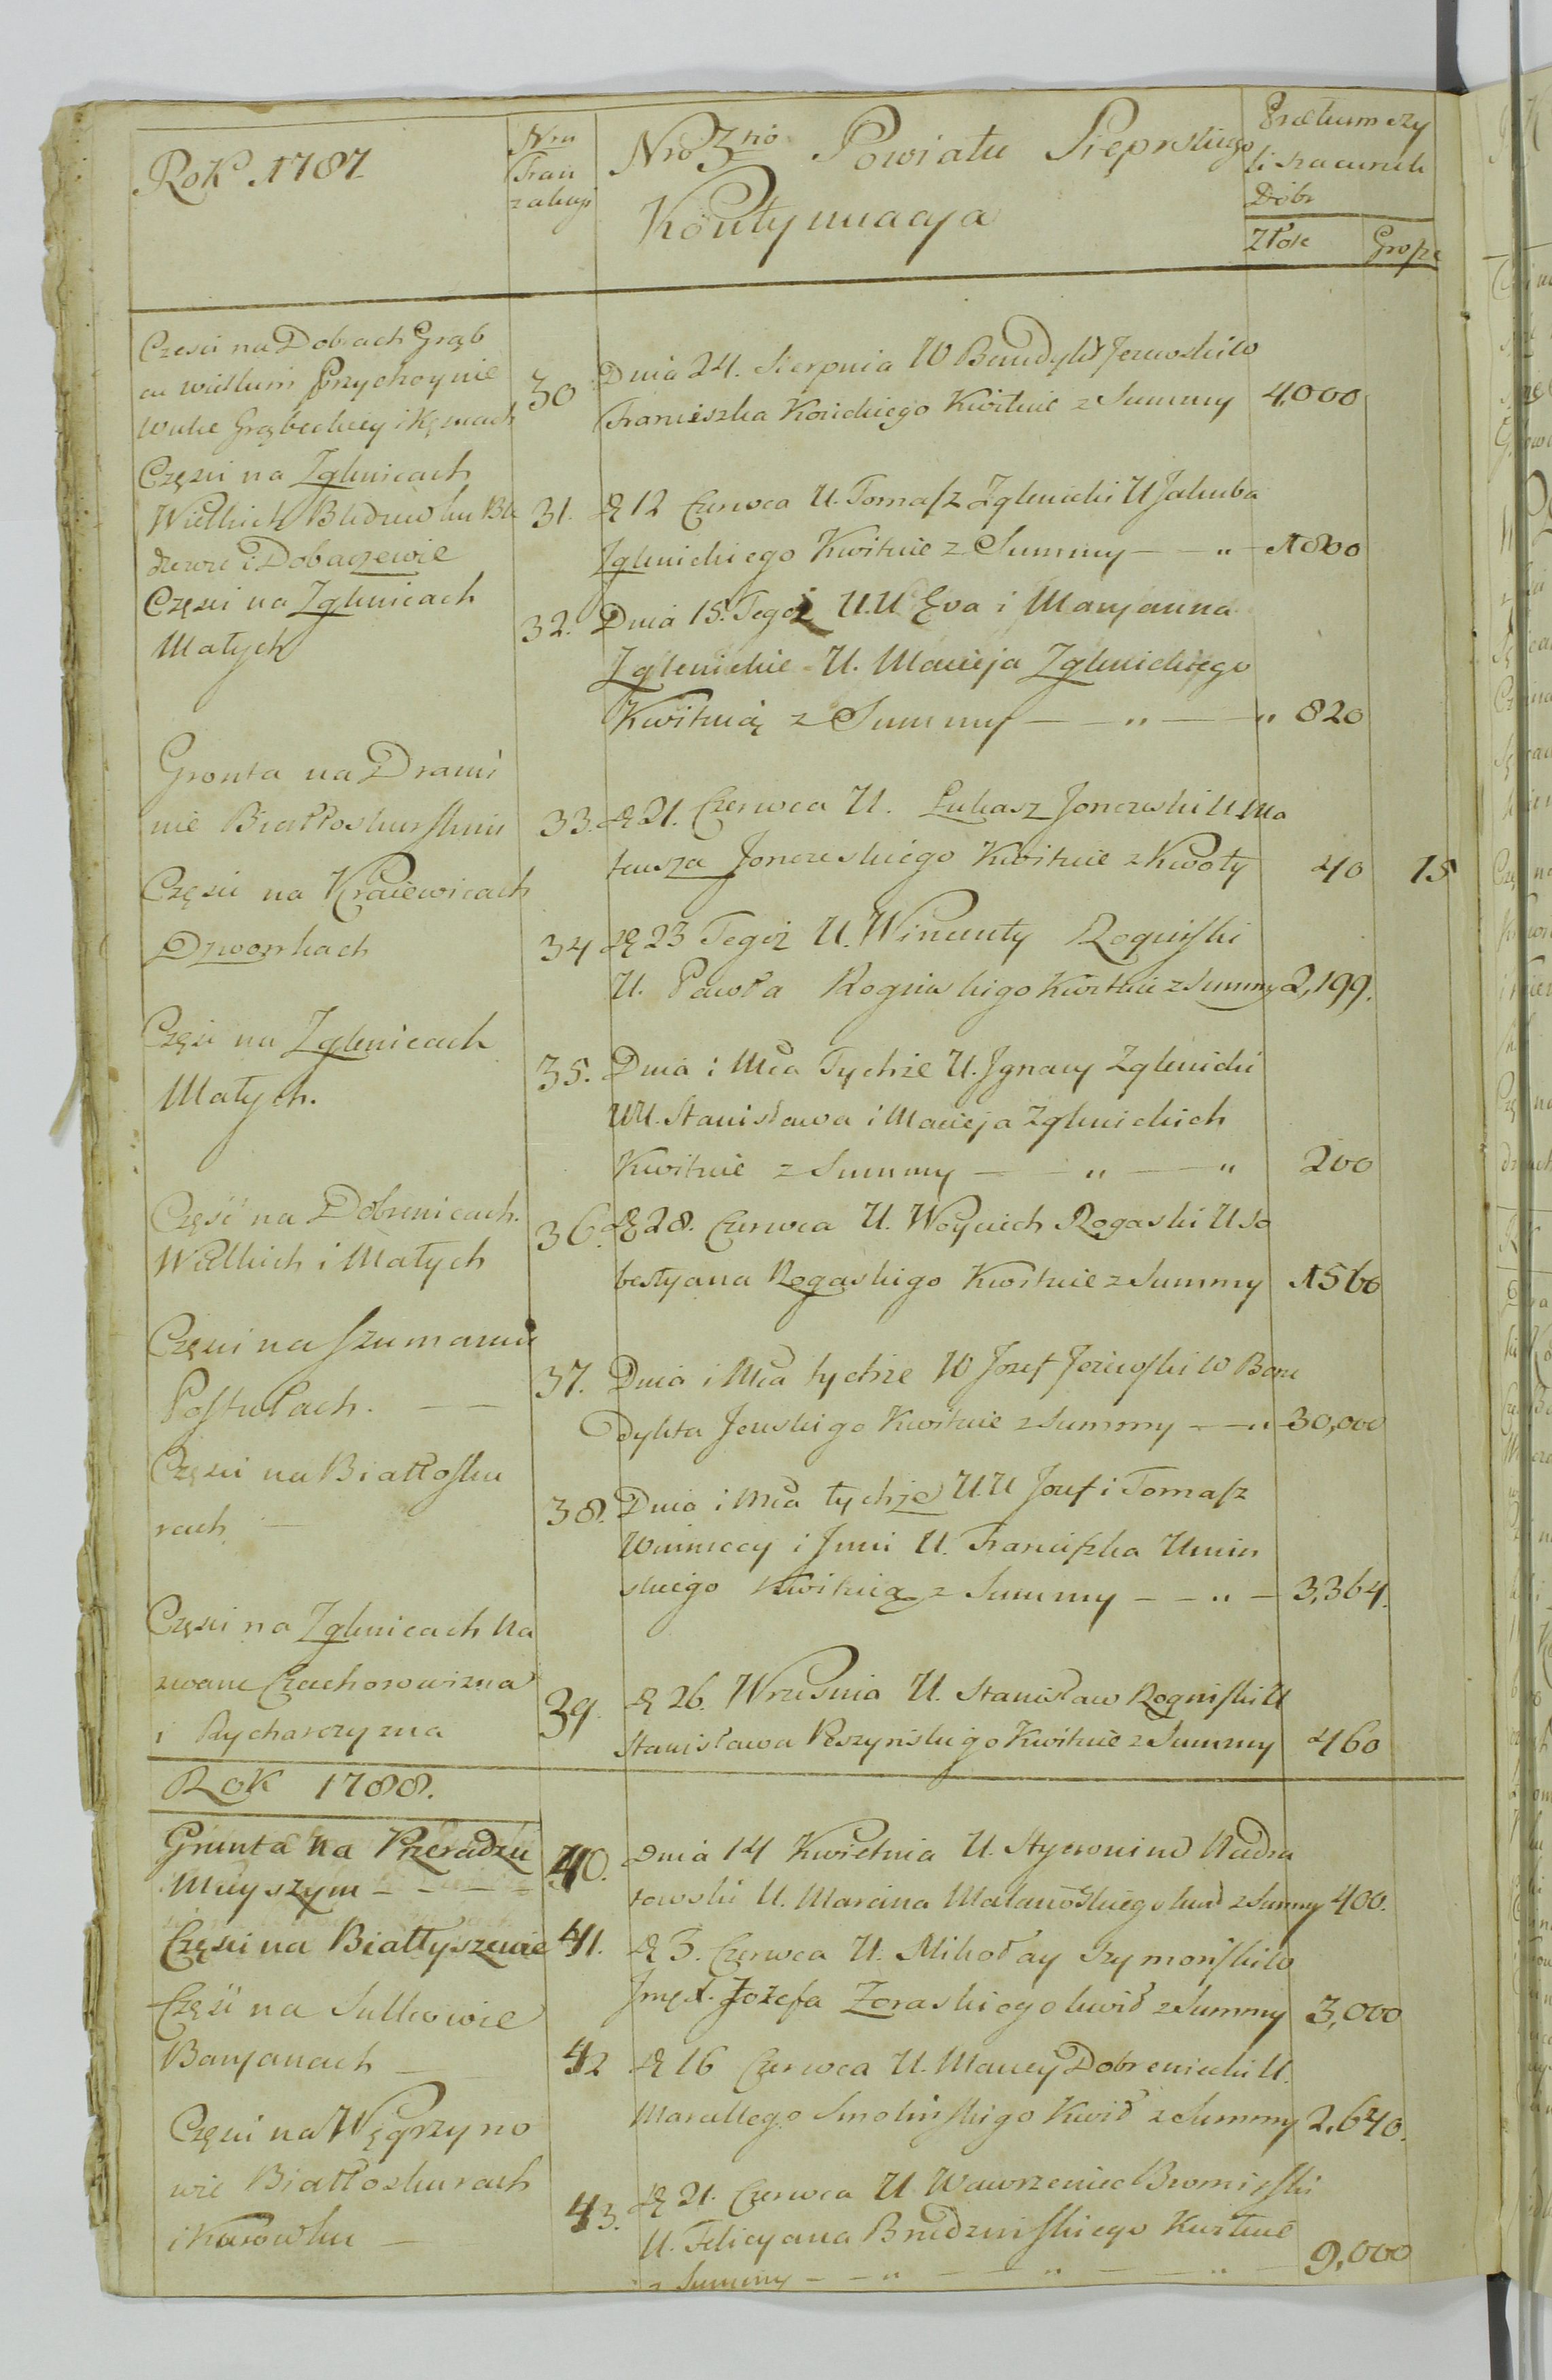 Rok 1787
Nru
Tran
zakcyi
Nro 3tio Powiatu Sieprskiego
Kontynuacya
Prætium czy
li szacunek
Dóbr
Złote Grosze
Czesci na Dobrach Grąb
cu wielkim Przychoynie
Wulce Grąbeckiey i Kęsach
30
Dnia 24. Sierpnia W Benedykt Jezewski W
Franciszka Kosickiego Kwituie z Summy 4,000
Części na Zglenicach
Wielkich Bledzewku Ble
dzewie i Dobaczewie
31.
D 12 Czerwca U. Tomasz Zglenicki U Jakuba
Zglenickiego Kwituie z Summy — „ — 1800
Części na Zglenicach
Małych
32.
Dnia 15. Tegoż U.U Ewa i Maryanna
Zglenickie U. Macieja Zglenickiego
Kwituią z Summy — — „ — „ 820
Gronta na Drami
nie Białłoskurskim
33.
D 21. Czerwca U. Łukasz Jonczeski U. Ma
teusza Jonczeskiego Kwituie z Kwoty 40 15
Części na Kraiewicach
Dzwonkach
34
D 23 Tegoż U. Wincenty Rogiński
U. Pawła Rogińskigo Kwituie z Summy 2,199.
Częsci na Zglenicach
Małych.
35.
Dnia i Mca Tychże U. Jgnacy Zglenicki
UU. Stanisława i Macieja Zglenickich
Kwituie z Summy — — „ — „ 200
Część na Dobrenicach
Wielkich i Małych
36.
D 28. Czerwca U. Woyciech Rogaski U So
bestyana Rogaskigo Kwituie z Summy 1560
Części na Szumaniu
Postułach. — —
37.
Dnia i Mca tychże W Jozef Jeżewski W Bene
dykta Jeuskigo Kwituie z Summy — — „ 30,000
Części na Białłosku
rach —
38.
Dnia i Mca tychże U.U Jozef i Tomasz
Winniccy i Jnni U. Franciszka Umin
skiego Kwituią z Summy — — „ — 3,364.
Części na Zglenicach Na
zwane Czachorowizna
i Rycharczyzna
39.
D 26. Wrzesnia U. Stanisław Rogiński U
Stanisława Peszyńskigo Kwituie z Summy 460
Rok 1788.
Grunta na Przeradzu
Mnyszym — — — —
40.
Dnia 14 Kwietnia U. Hyeronim Nadra
towski U. Marcina Malanoskiego kwit z Summy 400.
Części na Białłyszewie
41.
D 3. Czerwca U. Mikołay Szymoński W
Jmę X. Jozefa Zoraskiego kwit z Summy 3,000
Część na Sulkowie
Baryanach —
42
D 16 Czerwca U. Maciey Dobreniecki U.
Marcellego Smolińskigo Kwit z Summy 2,640.
Części na Węgrzyno
wie Białłoskurach
i Karowku —
43.
D 21. Czerwca U Wawrzeniec Bromirski
U. Felicyana Brudzińskiego Kwituie
z Summy — — „ — — „ — — „ — 9,000